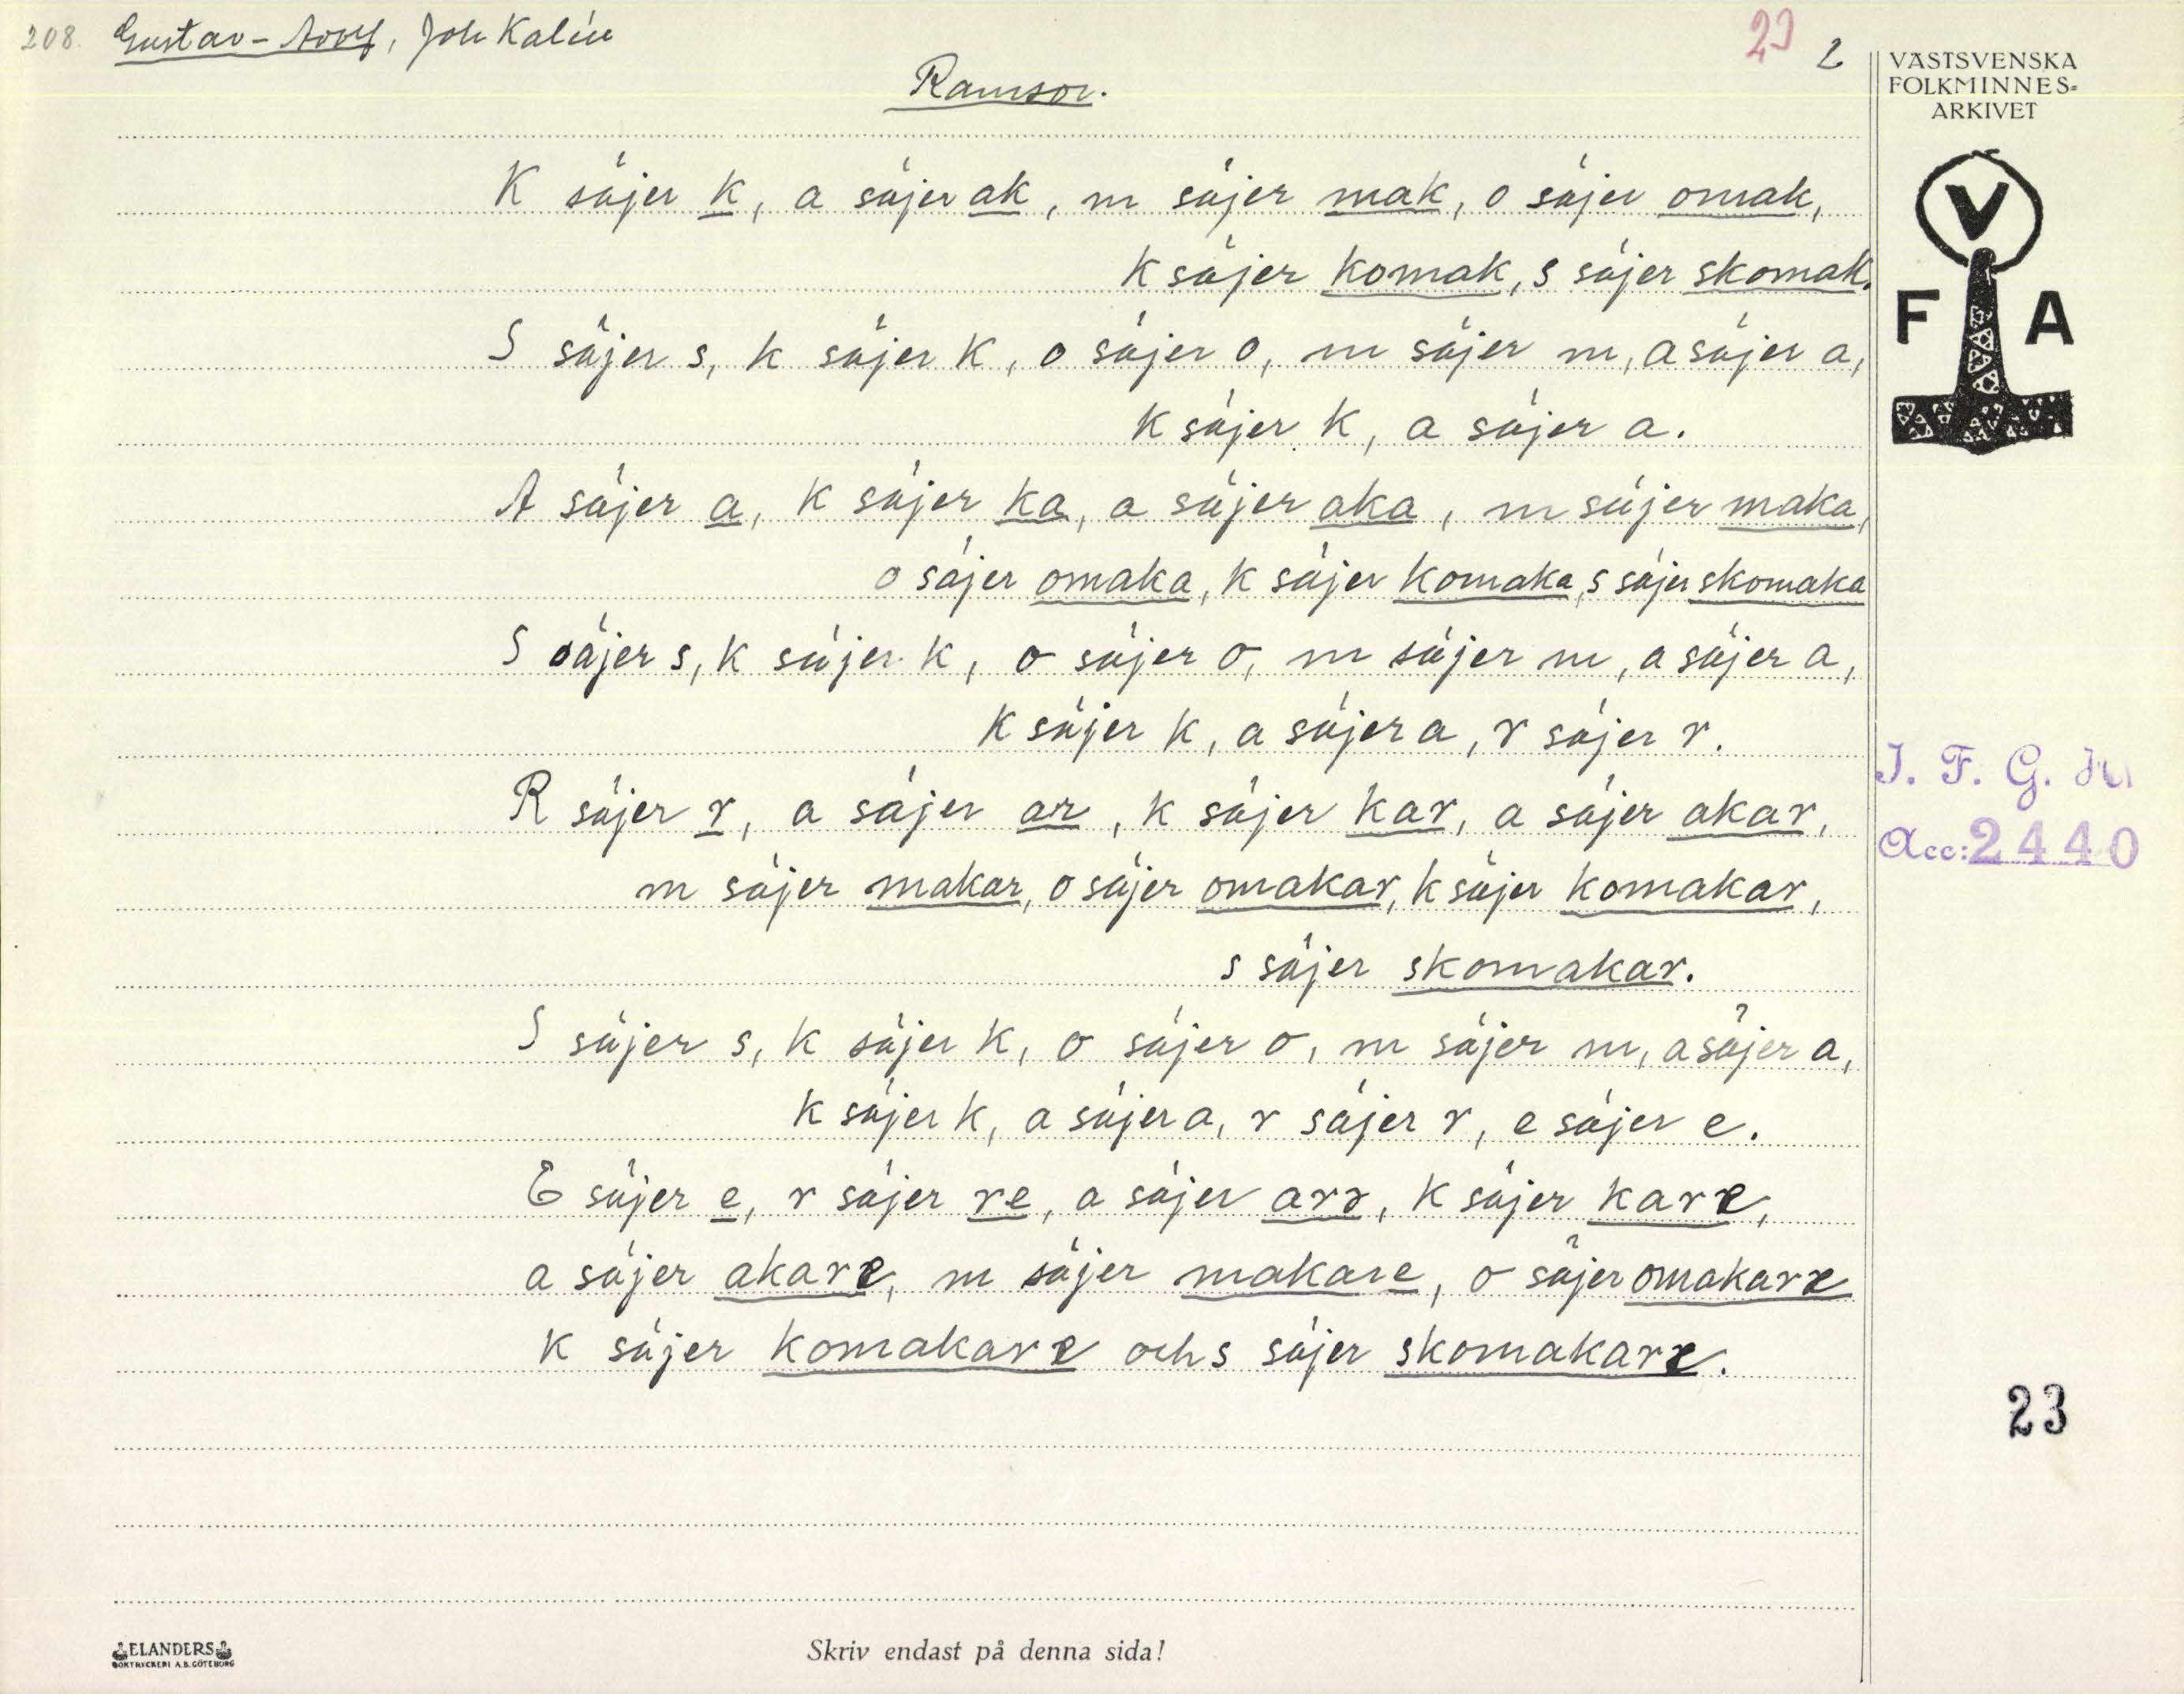 208. Gustav-Adolf, Joh Kalén
23 2
Ramsor.
VÄSTSVENSKA
FOLKMINNES-
ARKIVET
V
F A
K säjer k, a säjer ak, m säjer mak, o säjer omak,
k säjer komak, s säjer skomak.
S säjer s, k säjer k, o säjer o, m säjer m, a säjer a,
k säjer k, a säjer a.
A säjer a, k säjer ka, a säjer aka, m säjer maka,
o säjer omaka, k säjer komaka, s säjer skomaka
S säjer s, k säjer k, o säjer o, m säjer m, a säjer a,
k säjer k, a säjer a, r säjer r.
R säjer r, a säjer ar, k säjer kar, a säjer akar,
m säjer makar, o säjer omakar, k säjer komakar,
s säjer skomakar.
S säjer s, k säjer k, o säjer o, m säjer m, a säjer a,
k säjer k, a säjer a, r säjer r, e säjer e.
E säjer e, r säjer re, a säjer are, k säjer kare,
a säjer akare, m säjer makare, o säjer omakare
k säjer komakare och s säjer skomakare.
I. F. G. 
Acc: 2440
23
ELANDERS
BOKTRYCKERI A.B. GÖTEBORG
Skriv endast på denna sida!